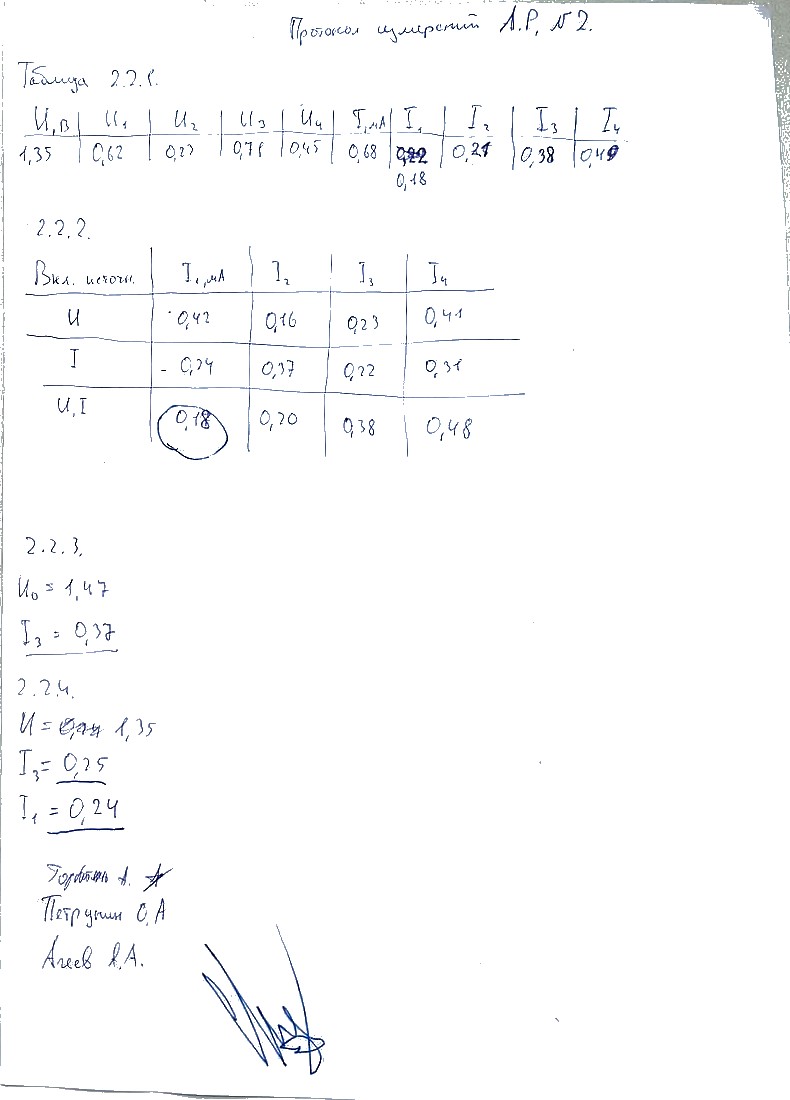 Протокол измерений Л.Р. №2.
Таблица 2.2.1.
U, В U₁ U₂ U₃ U₄ I, мА I₁ I₂ I₃ I₄
1,35 0,62 0,27 0,71 0,45 0,68 0,21 0,38 0,49
0,18
2.2.2.
Вкл. источн. I₁, мА I₂ I₃ I₄
U 0,42 0,16 0,23 0,41
I - 0,24 0,37 0,22 0,31
U, I 0,18 0,20 0,38 0,48
2.2.3.
U₀ = 1,47
I₃ = 0,37
2.2.4.
U = 1,35
I₃ = 0,25
I₁ = 0,24
А.
Петрунин О,А
Агеев А.А.